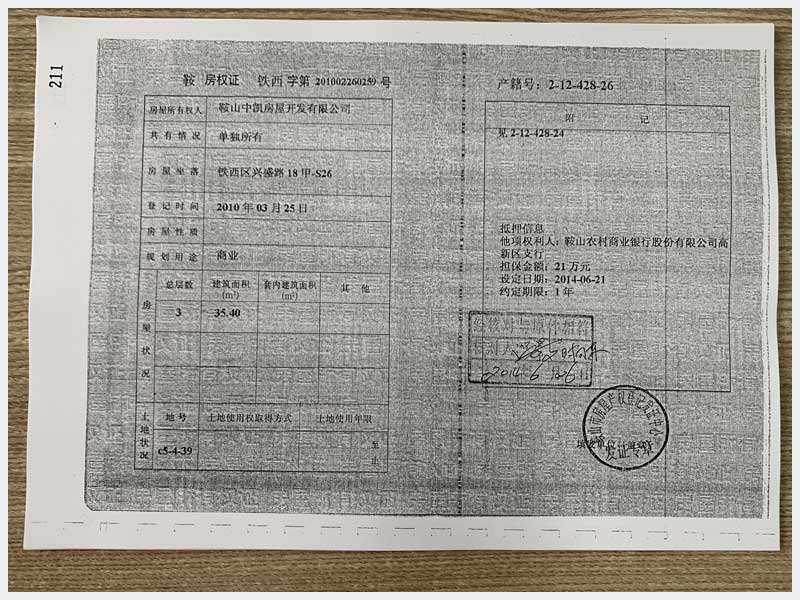 211
鞍 房权证 铁西 字第 201002260259 号
房屋所有权人 鞍山中凯房屋开发有限公司
共有情况 单独所有
房屋坐落 铁西区兴盛路 18 甲-S26
登记时间 2010 年 03 月 25 日
房屋性质
规划用途 商业
房屋状况
总层数 建筑面积(m²) 套内建筑面积(m²) 其他
3 35.40
土地状况
地号 土地使用权取得方式 土地使用年限
c5-4-39 至 止
产籍号：2-12-428-26
附 记
见 2-12-428-24
抵押信息
他项权利人：鞍山农村商业银行股份有限公司高
新区支行
担保金额：21 万元
设定日期：2014-06-21
约定期限：1 年
经核对与原件相符
核对人
2014 6 26日
鞍山市房屋产权登记发证中心
发证专章
填发单位